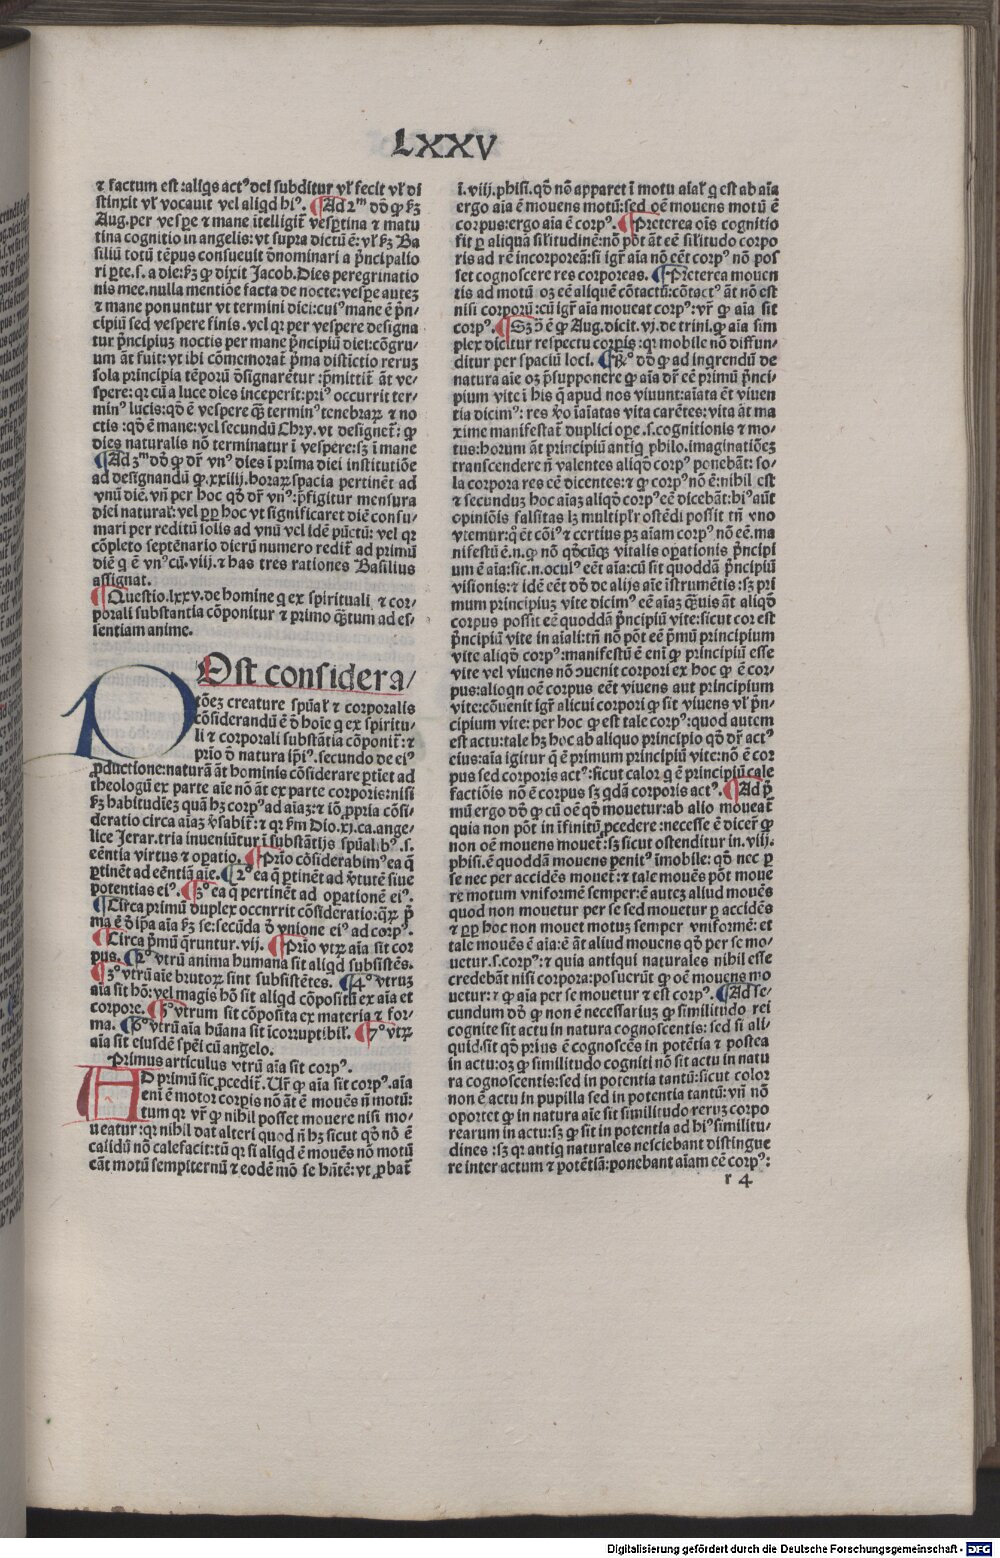 LXXV
⁊ factum est: aliqͥs actꝰ dei subditur vl̓ fecit vl̓ di
stinxit vl̓ vocauit vel aliqd hiꝰ. ¶Ad 2ᵐ dō̓ ꝙ ẜm
Aug. per vesꝑe ⁊ mane ītelligit̄ vesꝑtina ⁊ matu
tina cognitio in angelis: vt supra dictū ē: vl̓ ẜm Ba
siliū totū tēpus consueuit d̓nominari a p̄ncipalio
ri ꝑte .s. a die: ẜm ꝙ dixit Jacob. Dies peregrinatio
nis mee. nulla mentiōe facta de nocte: vesꝑe autez
⁊ mane ponuntur vt termini diei: cuiꝰ mane ē p̄n-
cipiū sed vespere finis. vel qꝛ per vespere designa
tur p̄ncipiuȝ noctis per mane p̄ncipiū diei: cōgru-
um āt fuit: vt ibi cōmemorat̄ p̄ma distīctio reruȝ
sola principia tēporū d̓signarētur: p̄mittit̄ āt ve-
spere: qꝛ cū a luce dies inceperit: priꝰ occurrit ter-
minꝰ lucis: qd̓ ē vespere qȝ̄ terminꝰ tenebraꝝ ⁊ no
ctis: qd̓ ē mane: vel secundū Chry. vt designet̄: ꝙ
dies naturalis nō terminatur ī vespere: sȝ ī mane
¶Ad 3ᵐ dō̓ ꝙ dr̄ vnꝰ dies ī prima diei institutiōe
ad designandū ꝙ .xxiiij. horaꝝ spacia pertinēt ad
vnū diē. vn̄ per hoc qd̓ dr̄ vnꝰ: p̄figitur mensura
diei natural̓: vel ꝓp hoc vt significaret diē consu/
mari per reditū solis ad vnū vel idē pūctū: vel qꝛ
cōpleto septēnario dierū numero redit̄ ad primū
diē q̄ ē vnꝰ cū .viij. ⁊ has tres rationes Basilius
assignat.
¶Questio .lxxv. de homine q̄ ex spirituali ⁊ cor-
porali substantia cōponitur ⁊ primo qȝ̄tum ad es-
sentiam anime.
POst considera/
tōeȝ creature spūal̓ ⁊ corporalis
cōsiderandū ē d̓ hoīe q̄ ex spiritu-
li ⁊ corporali substātia cōponit̄: ⁊
prīo d̓ natura ip̄iꝰ. secundo de eiꝰ
ꝓductione: naturā āt hominis cōsiderare ꝑtiēt ad
theologū ex parte aīe nō āt ex parte corporis: nisi
ẜm habitudīeȝ quā hȝ corpꝰ ad aīaȝ: ⁊ iō ꝓpria cōsi-
deratio circa aīaȝ v̓sabit̄: ⁊ qꝛ ẜm Dio. xj. ca. ange-
lice Jerar. tria inueniūtur ī substātijs spūalibꝰ .s.
eēntia virtus ⁊ oꝑatio. ¶Prīo cōsiderabimꝰ ea q̄
ꝑtinēt ad eēntiā aīe. ¶2ꝰ ea q̄ ꝑtinēt ad v̓tutē siue
potentias eiꝰ. ¶3ꝰ ea q̄ pertinēt ad oꝑationē eiꝰ.
¶Circa primū duplex occnrrit cōsideratio: qȝ p̄
ma ē d̓ ip̄a aīa ẜm se: secūda d̓ vnione eiꝰ ad corpꝰ.
¶Circa p̄mū q̄runtur .vij. ¶Prīo vtꝝ aīa sit cor
pus. ¶2ꝰ vtrū anima humana sit aliqd subsistēs.
¶3ꝰ vtrū aīe brutoꝝ sint subsistētes. ¶4ꝰ vtruȝ
aīa sit hō: vel magis hō sit aliqd cōpositū ex aīa et
corpore. ¶5ꝰ vtrum sit cōposita ex materia ⁊ for-
ma. ¶6ꝰ vtrū aīa hūana sit īcorruptibil̓. ¶7ꝰ vtꝝ
aīa sit eiusdē sp̄ei cū angelo.
Primus articulus vtrū aīa sit corpꝰ.
AD primū sic ꝓcedit̄. Ur̄ ꝙ aīa sit corpꝰ. aīa
enī ē motor corpis nō āt ē mouēs n̄ motū:
tum qꝛ vr̄ ꝙ nihil posset mouere nisi mo-
ueatur: qꝛ nihil dat alteri quod n̄ hȝ sicut qd̓ nō ē
calidū nō calefacit: tū qꝛ si aliqd ē mouēs nō motū
cāt motū sempiternū ⁊ eodē mō se hn̄tē: vt ꝓbat̄
ī .viij. phisi. qd̓ nō apparet ī motu aīal̓ q̄ est ab aīa
ergo aīa ē mouens motū: sed oē mouens motū ē
corpus: ergo aīa ē corpꝰ. ¶Preterea oīs cognitio
fit ꝑ aliquā sil̓itudinē: nō pōt āt eē sil̓itudo corpo
ris ad rē incorporeā: si igr̄ aīa nō cēt corpꝰ nō pos
set cognoscere res corporeas. ¶Preterea mouen
tis ad motū oȝ eē aliquē cōtactū: cōtactꝰ āt nō est
nisi corporū: cū igr̄ aīa moueat corpꝰ: vr̄ ꝙ aīa sit
corpꝰ. ¶Sȝ ↄ̄ ē ꝙ Aug. dicit. vj. de trini. ꝙ aīa sim
plex dicitur respectu corpis: qꝛ mobile nō diffun-
ditur per spaciū loci. ¶Rⁿ dō̓ ꝙ ad inqrendū de
natura aīe oȝ p̄supponere ꝙ aīa dr̄ eē primū p̄nci-
pium vite ī his q̄ apud nos viuunt: aīata ēt viuen
tia dicimꝰ: res v̓o īaīatas vita carētes: vita āt ma
xime manifestat̄ duplici oꝑe .s. cognitionis ⁊ mo-
tus: horum āt principiū antiq̄ philo. imaginatiōeȝ
transcendere n̄ valentes aliqd̓ corpꝰ ponebāt: so-
la corpora res eē dicentes: ⁊ ꝙ corpꝰ nō ē: nihil est
⁊ secunduȝ hoc aīaȝ aliqd̓ corpꝰ eē dicebāt: hiꝰ aūt
opiniōis falsitas lȝ multipl̓r ostēdi possit tn̄ vno
vtemur: q̄ ēt cōīꝰ ⁊ certius pȝ aīam corpꝰ nō eē. ma
nifestū ē .n. ꝙ nō qd̓cūqȝ vitalis oꝑationis p̄ncipi
um ē aīa: sic .n. oculꝰ eēt aīa: cū sit quoddā p̄ncipiū
visionis: ⁊ idē eēt dō̓ de alijs aīe īstrumētis: sȝ pri
mum principiuȝ vite dicimꝰ eē aīaȝ qȝ̄uis āt aliqd̓
corpus possit eē quoddā p̄ncipiū vite: sicut cor est
p̄ncipiū vite in aīali: tn̄ nō pōt eē p̄mū principium
vite aliqd̓ corpꝰ: manifestū ē enī ꝙ principiū esse
vite vel viuens nō ↄuenit corpori ex hoc ꝙ ē cor-
pus: alioqn oē corpus eēt viuens aut principium
vite: cōuenit igr̄ alicui corpori ꝙ sit viuens vl̓ p̄n-
cipium vite: per hoc ꝙ est tale corpꝰ: quod autem
est actu: tale hȝ hoc ab aliquo principio qd̓ dr̄ actꝰ
eius: aīa igitur q̄ ē primum principiū vite: nō ē cor
pus sed corporis actꝰ: sicut calor q̄ ē principiū cale
factiōis nō ē corpus sȝ qdā corporis actꝰ. ¶Ad p̄
mū ergo dō̓ ꝙ cū oē qd̓ mouetur: ab alio moueat̄
quia non pōt in īfinitū ꝓcedere: necesse ē dicer̄ ꝙ
non oē mouens mouet̄: sȝ sicut ostenditur in .viij.
phisi. ē quoddā mouens penitꝰ īmobile: qd̓ nec ꝑ
se nec per accidēs mouet̄: ⁊ tale mouēs pōt moue
re motum vniformē semper: ē autez aliud mouēs
quod non mouetur per se sed mouetur ꝑ accidēs
⁊ ꝓp hoc non mouet motuȝ semper vniformē: et
tale mouēs ē aīa: ē āt aliud mouens qd̓ per se mo/
uetur .s. corpꝰ: ⁊ quia antiqui naturales nihil esse
credebāt nisi corpora: posuerūt ꝙ oē mouens mo
uetur: ⁊ ꝙ aīa per se mouetur ⁊ est corpꝰ. ¶Ad se/
cundum dō̓ ꝙ non ē necessariuȝ ꝙ similitudo rei
cognite sit actu in natura cognoscentis: sed si ali-
quid sit qd̓ prius ē cognoscēs in potētia ⁊ postea
in actu: oȝ ꝙ similitudo cogniti nō sit actu in natu
ra cognoscentis: sed in potentia tantū: sicut color
non ē actu in pupilla sed in potentia tantū: vn̄ nō
oportet ꝙ in natura aīe sit similitudo reruȝ corpo
rearum in actu: sȝ ꝙ sit in potentia ad hiꝰ similitu/
dines: sȝ qꝛ antiq̄ naturales nesciebant distingue
re inter actum ⁊ potētiā: ponebant aīam eē corpꝰ:
r 4
Digitalisierung gefördert durch die Deutsche Forschungsgemeinschaft - DFG